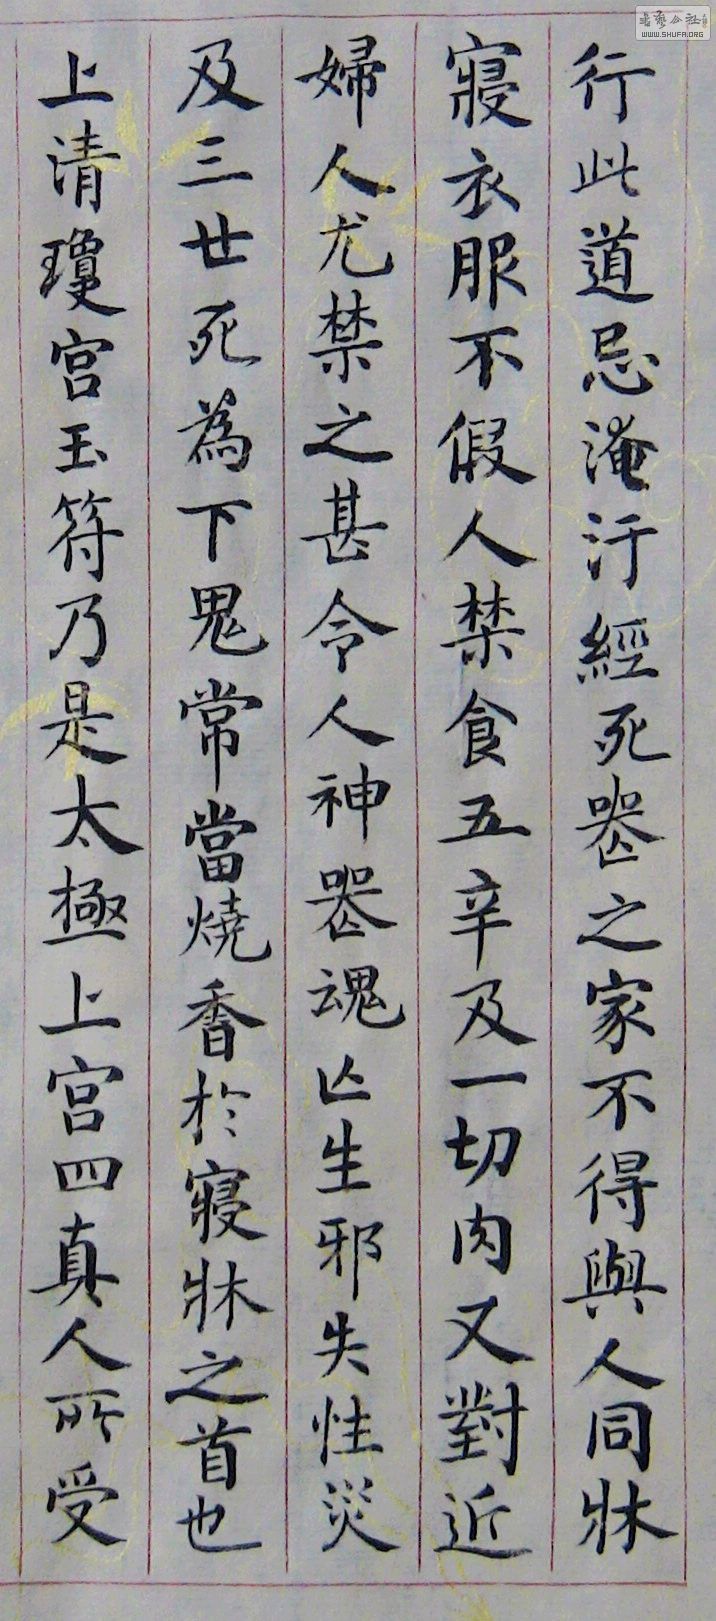 行此道忌淹汙經死䘮之家不得與人同牀
寢衣服不假人禁食五辛及一切肉又對近
婦人尤禁之甚令人神䘮魂亾生邪失性災
及三世死為下鬼常當燒香於寢牀之首也
上清瓊宮玉符乃是太極上宮四真人所受
WWW.SHUFA.ORG